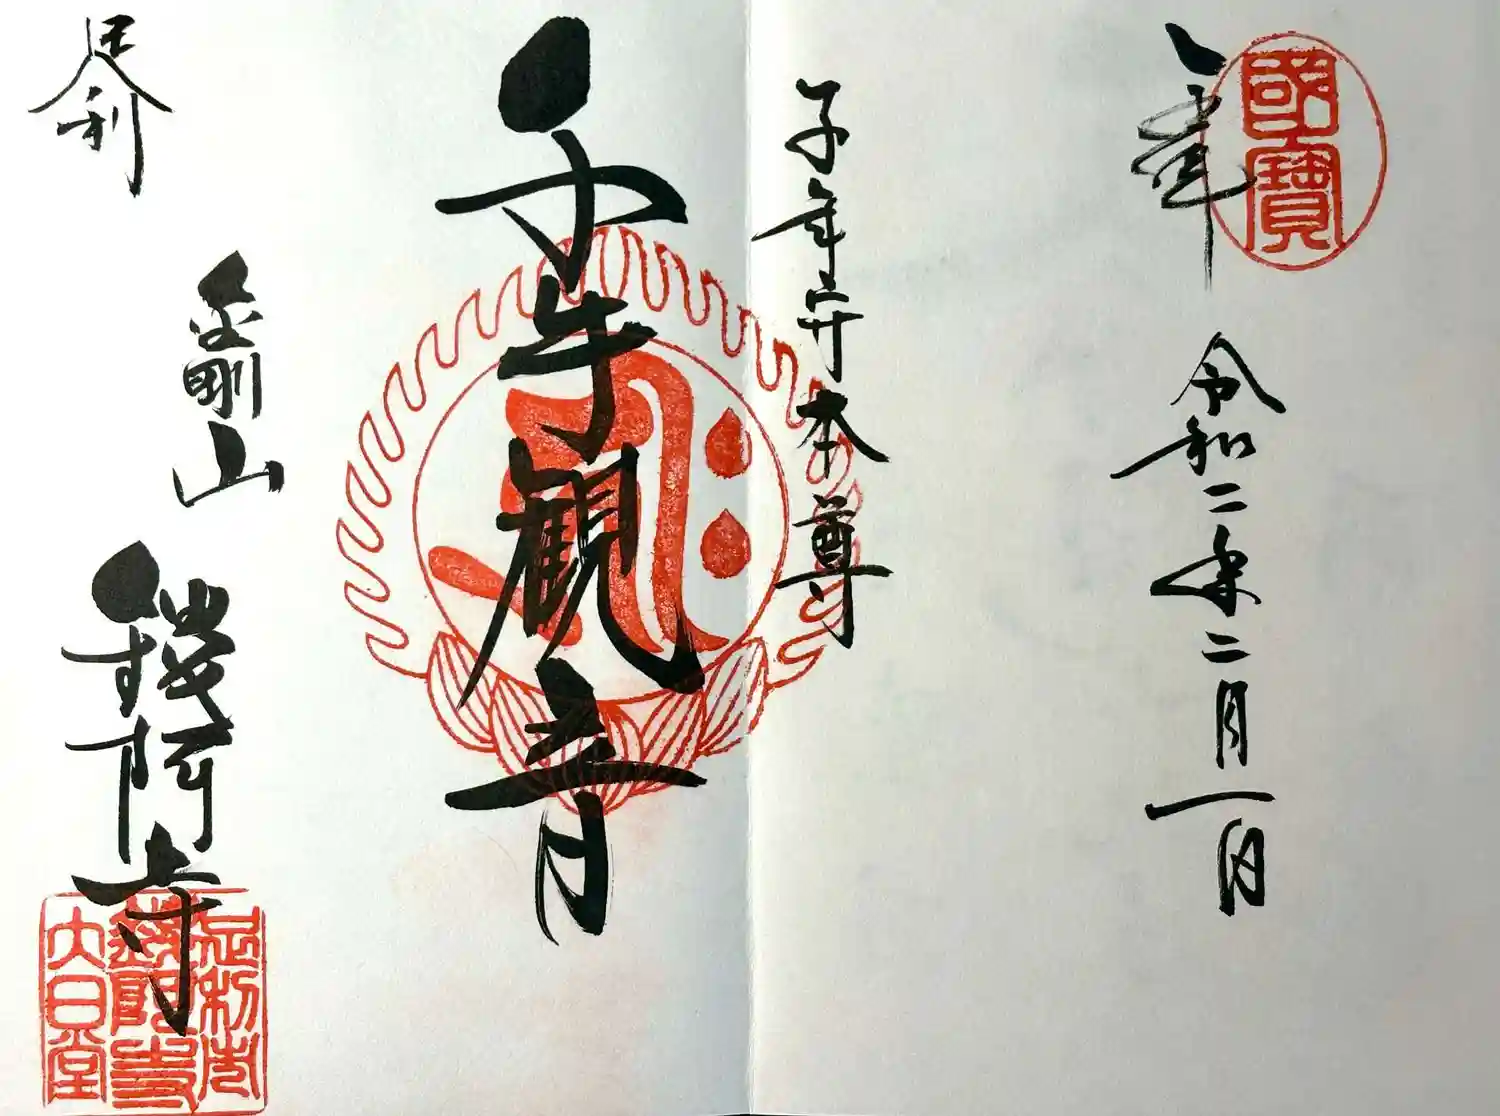 奉拝
國寳
令和二年二月一日
子年守本尊
千手観音
足利
金剛山
鑁阿寺
足利市
鑁阿寺
大日堂